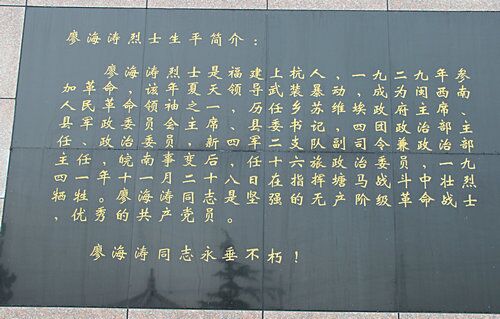 廖海涛烈士生平简介：
廖海涛烈士是福建上杭人，一九二九年参
加革命，该年夏天领导武装暴动，成为闽西南、
人民革命领袖之一，历任乡苏维埃政府主席、
县军政委员会主席、县委书记、四团政治部主
任、政治委员、新四军二支队副司令兼政治部
主任，皖南事变后任十六旅政治委员，一九
四一年十一月二十八日在指挥塘马战斗中壮烈
牺牲。廖海涛同志是坚强的无产阶级革命战士
，优秀的共产党员。
廖海涛同志永垂不朽！